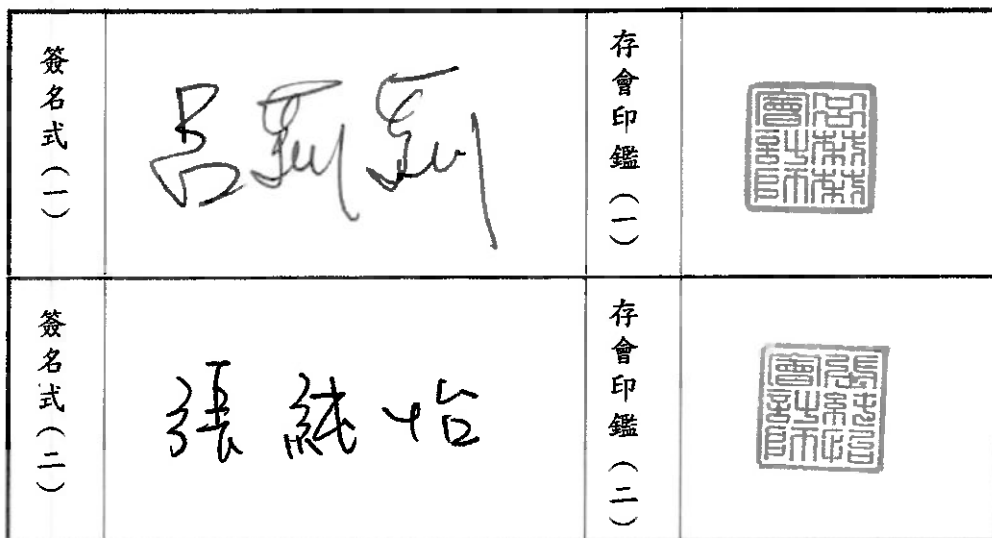 簽名式(一)
呂莉莉
存會印鑑(一)
呂莉莉
會計師
簽名式(二)
張純怡
存會印鑑(二)
張純怡
會計師